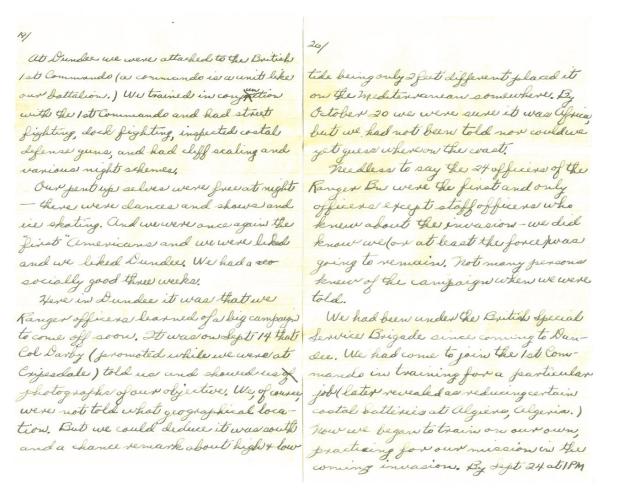 19/
At Dundee we were attached to the British
1st Commando (a commando is a unit like
our battalion.) We trained in conjunction
with the 1st Commando and had street
fighting, dock fighting, inspected costal
defense guns, and had cliff scaling and
various night schemes.
Our pent up selves were free at night
— there were dances and shows and
ice skating. And we were once again the
first "Americans and we were liked
and we liked Dundee. We had a
socially good three weeks.
Here in Dundee it was that we
Ranger officers learned of a big campaign
to come off soon. It was on Sept 14 that
Col Darby (promoted while we were at
) told us and showed us
photographs of our objective. We, of course
were not told what geographical loca-
tion. But we could deduce it was south
and a chance remark about high & low
20/
tide being only 2 feet different placed it
on the Mediterranean somewhere. By
October 20 we were sure it was Africa,
but we had not been told nor could we
yet guess where on the coast.
Needless to say the 24 officers of the
Ranger Bn were the first and only
officers except staff officers who
knew about the invasion - we did
know we (or at least the force) was
going to remain. Not many persons
knew of the campaign when we were
told.
We had been under the British Special
Service Brigade since coming to Dun-
dee. We had come to join the 1st Com-
mando in training for a particular
job (later revealed as reducing certain
costal batteries at Algiers, Algeria.)
Now we began to train on our own,
practicing for our mission in the
coming invasion. By Sept 24 at 1 PM